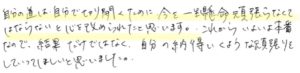 自分の道は自分で切り開くために今を一生懸命頑張らなくて
はならないと心を改められたと思います。これからいよいよ本番
なので、結果だけではなく、自分の納得いくような頑張りを
していってほしいと思いました。